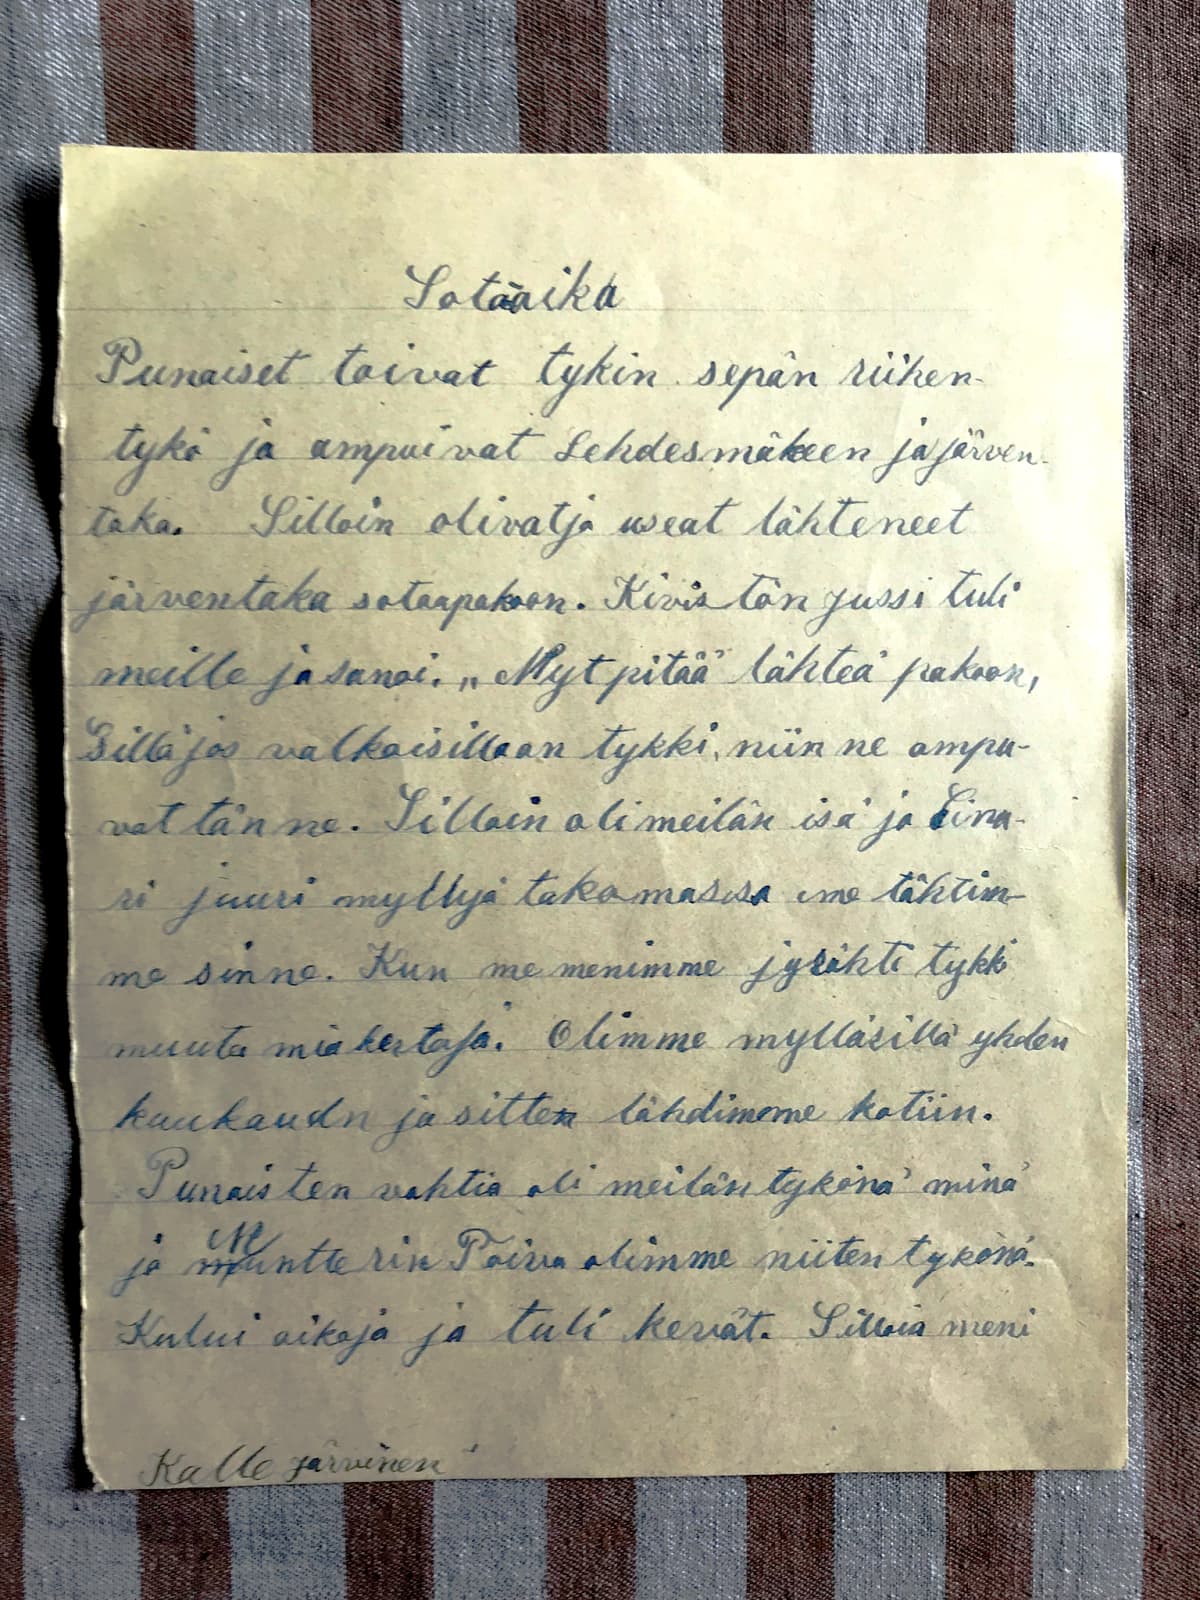 Sotaaika
Punaiset toivat tykin sepän riihen-
tykö ja ampuivat Lehdesmäkeen ja järven-
taka. Silloin olivatja useat lähteneet
järventaka sotaapakoon. Kivistön Jussi tuli
meille jasanoi. „Nyt pitää lähteä pakoon,
Silläjos valkoisillaan tykki, niin ne ampu-
vat tänne. Silloin oli meilän isä ja Eina-
ri juuri myllyä takomassa me tähtim-
me sinne. Kun me menimme jyrähti tykki
muuta mia kertaja. Olimme mylläsillä yhden
kuukaudn ja sitten lähdimme kotiin.
Punaisten vahtia oli meilän tykönä minä
ja Muntterin Toiva olimme niiten tykönä.
Kului aikaja ja tuli kevät. Silloia meni
Kalle Järvinen